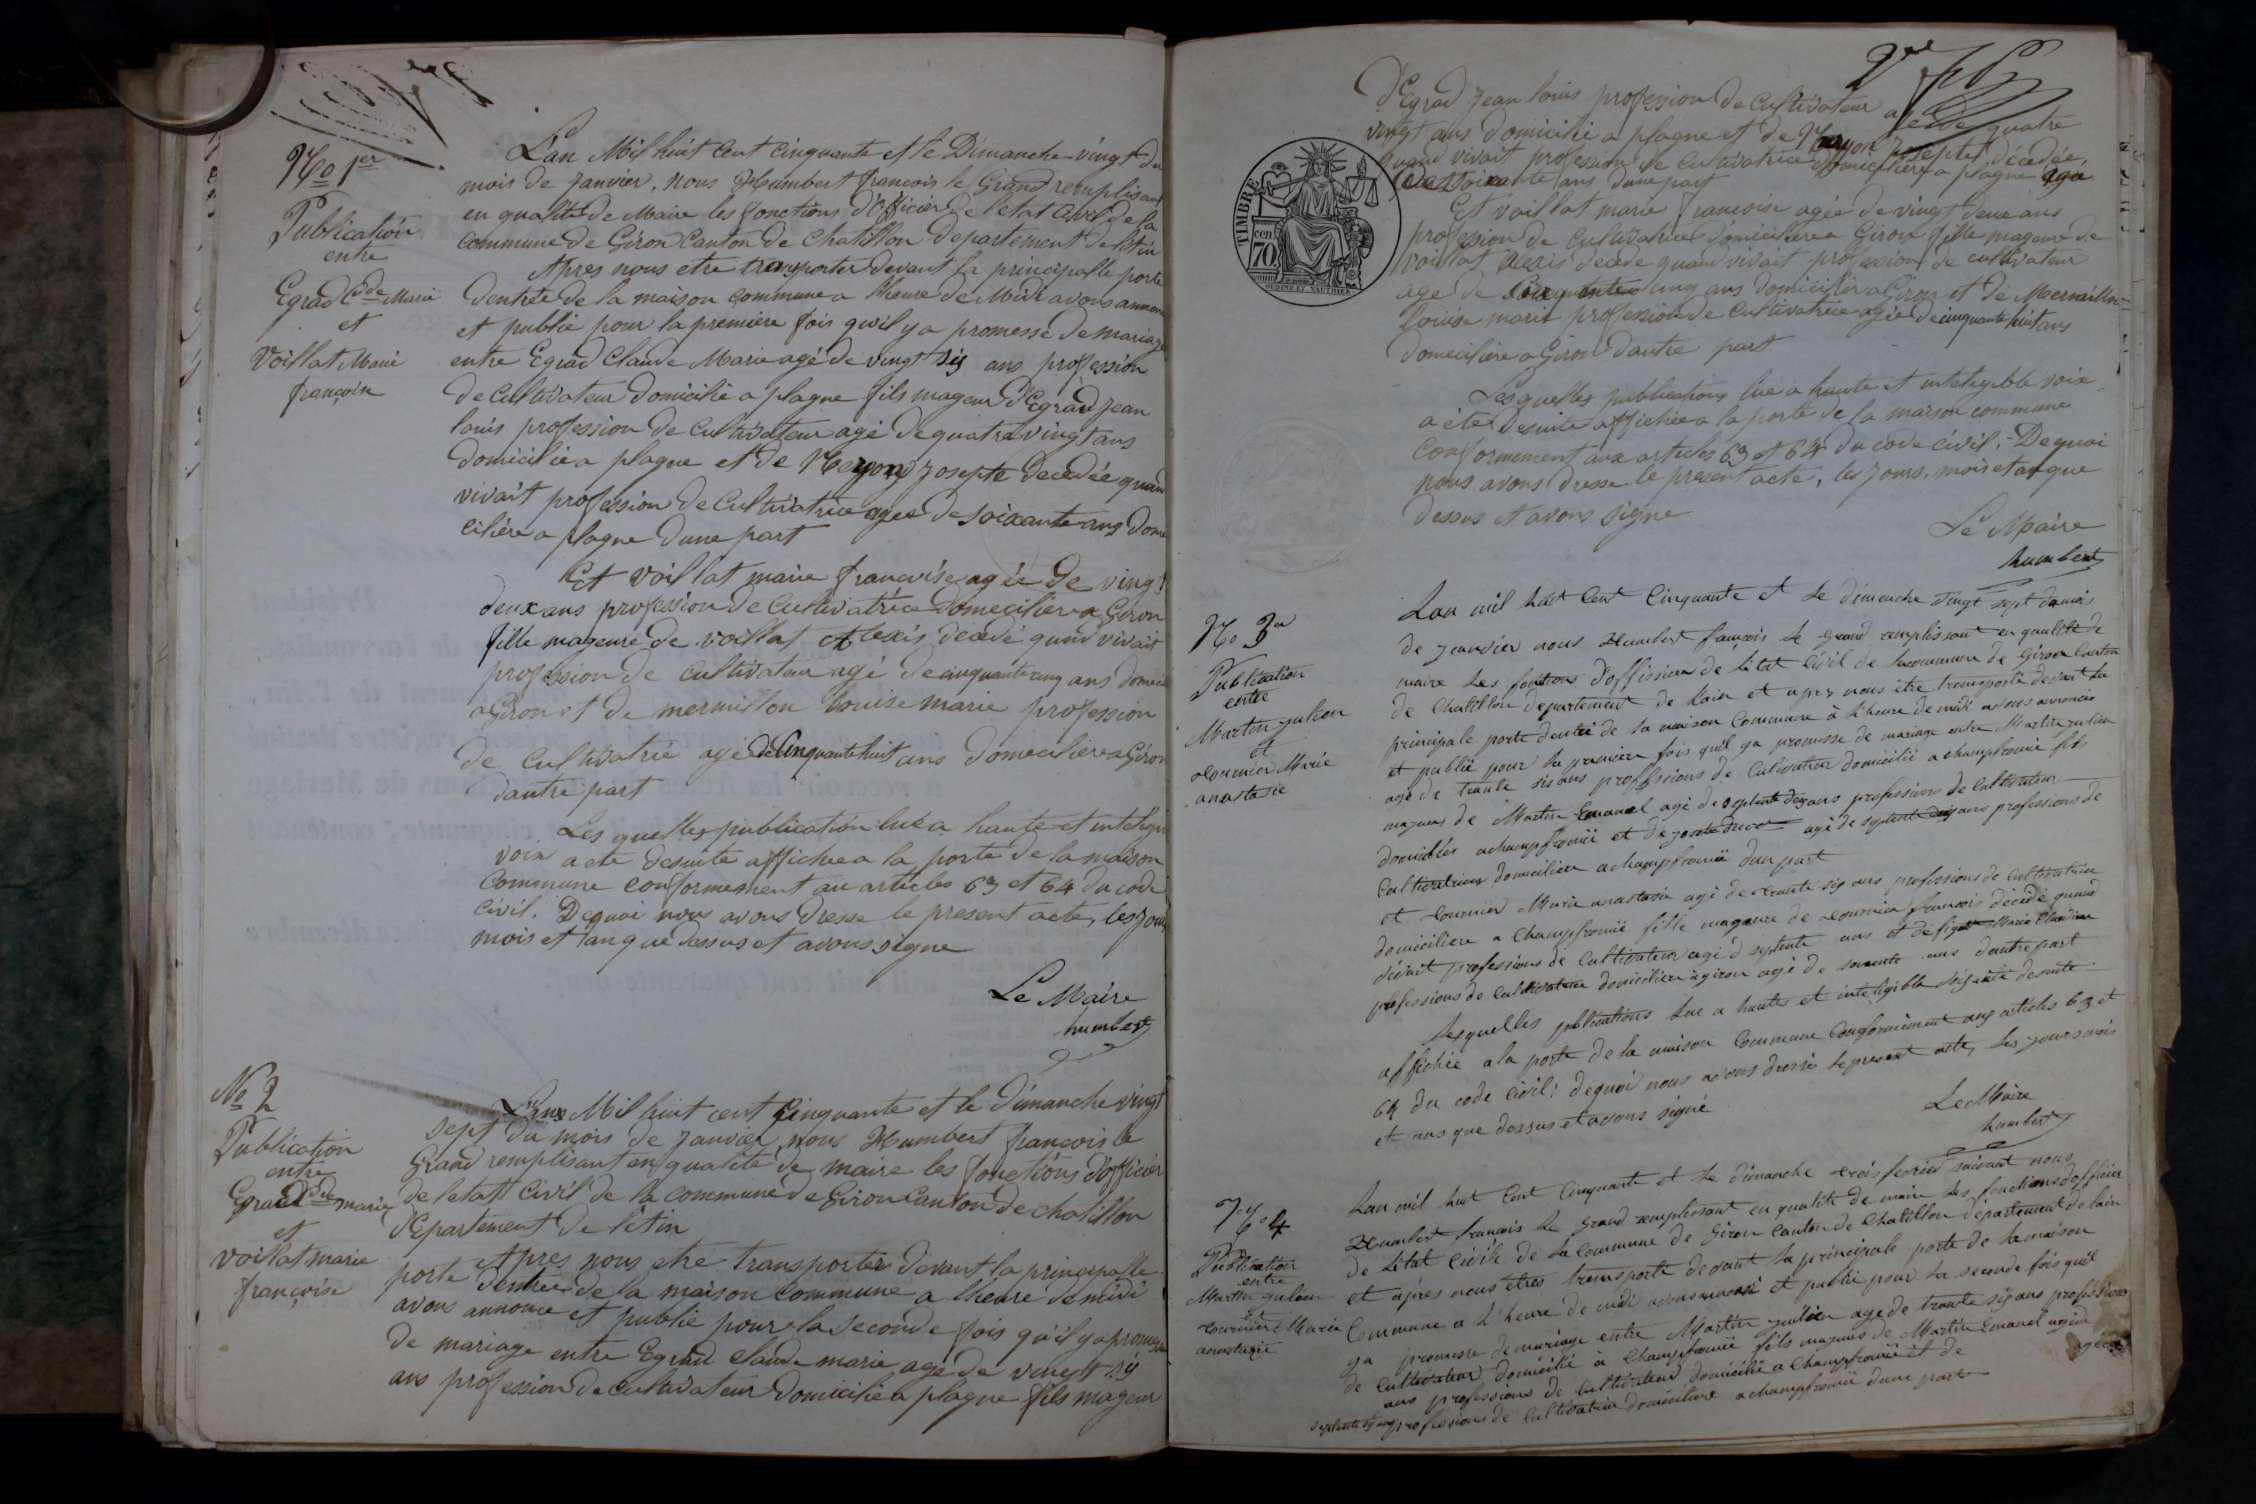 No 1er
Publication
entre
Egrad Cde Marie
et
Voillat Marie
françoise
L'an Mil huit cent cinquante et le Dimanche vingt du
mois de Janvier, nous Humbert françois le Grand remplisant
en qualité de Maire les fonctions d'officier de l'etat civil de la
commune de Giron Canton de Chatillon departement de l'Ain
Apres nous etre transporter devant la principalle porte
dentrée de la maison commune a lheure de Midi avons annoncé
et publié pour la premiere fois qu'il y a promesse de mariage
entre Egrad Claude Marie agé de vingt six ans profession
de Cultivateur domicilié a plagne fils mageur d'Egrad Jean
louis profession de Cultivateur agé de quatre vingt ans
domicilié a plagne et de Josepte decedée quand
vivait profession de Cultivatrice agee de soixante ans domi
ciliére a plagne d'une part
Et voillat marie francoise agée de vingt
deux ans profession de Cultivatrice domeciliére a Giron
fille mageure de voillat Alexis décédé quand vivait
profession de cultivateur agé de cinquante cinq ans domici
a Giron et de mermillon louise marie profession
de Cultivatrie agé de Cinquante huit ans domeciliére a Giron
d'autre part
Les quelles publication lue a haute et inteligi
voix a été desuite affichee a la porte de la maison
commune conformement au articles 63 et 64 du code
civil. Dequoi nous avons dresse le present acte, les jours
mois et an que dessus et avons signe
Le Maire
humbert
No 2
Publication
entre
Egrad Cde marie
et
voillat marie
françoise
L'an Mil huit cent Cinquante et le dimanche vingt
sept du mois de Janvier, nous Humbert françois le
Grand remplisant en qualité de maire les fonctions d'officier
de l'etat civil de la commune de Giron Canton de chatillon
departement de l'Ain
Apres nous etre transporter devant la principalle
porte dentrée de la maison commune a lheure de midi
avons annonce et publié pour la seconde fois qu'il y a promesse
de mariage entre Egrad claude marie agé de vingt six
ans profession de cultivateur domicilié a plagne fils mageur
d'Egrad Jean louis profession de Cultivateur agé de quatre
vingt ans domicilié a plagne et de Josepte décedée
quand vivait profession de Cultivatrice domiciliére a plagne age
de soixante ans d'une part
TIMBRE
cen
70
OUDINE ET VAUTHIER
Et voillat marie francoise agée de vingt deux ans
profession de cultivatrice domiciliere a Giron fille mageure de
voillat Alexis décédé quand vivait profession de cultivateur
age de Cinquante cinq ans domicilier a Giron et de Mermillon
louise marie profession de Cultivatrice agée de cinquante huit ans
domeciliére a Giron d'autre part
Les quelles publications lue a haute et intelegible voix
a été desuite affichée a la porte de la maison commune
conformement aux articles 63 et 64 du code civil. Dequoi
nous avons dressé le present acte, les jours, mois et an que
dessus et avons signe
Le Maire
humbert
No 3
Publication
entre
Martin julien
et
tournier Marie
anastasie
Lan mil huit Cent Cinquante et le dimenche vingt sept du mois
de janvier nous Humbert françois le grand remplissant en qualité de
maire les fontions d'offissiers de létat Civil de la commune de Giron Canton
de Chatillon departement de lain et aprez nous être transporté devant la
principale porte dentré de la maison Commune à l'heure de midi avons annoncée
et publié pour la premiere fois quil ya promesse de mariage entre Martin julien
agé de trante sis ans proffessions de Cultivateur domicilié a champfromié fils
majeurs de Martin Emanel agé de septente professions de Cultivateur
domicilies achampfromié et de agé de septente professions de
Cultivatrices domiciliere achampfromié dun part
et tournier Marie anastasie agé de trante sis ans professions de Cultivatrice
domiciliere a Champfromié fille mageure de tournier francois décédé quand
vivait professions de Cultivateur agé d septente ans et de Marie Claudine
professions de Cultivatrice domiciliere a giron agé de soisente ans dautre part
Lesquelles publications lue a haute et inteligible été desuite
affichée a la porte de la maison Commune Conformement aux articles 63 et
64 du code Civil: dequoi nous avons dressé le present acte, les jours mois
et ans que dessus et avons signé
Le Maire
humbert
No 4
Publication
entre
Martin julien
et
tournier Marie
anastasie
Lan mil huit Cent Cinquante et le dimanche trois fevrier suivant nous
Humbert francois le grand remplissant en qualité de maire les fonctions d'officier
de létat civile de la Commune de Giron Canton de Chatillon departement de lain
et apres nous êtres transporté devant la principale porte de la maison
Commune a l'heure de midi avons annonsé et publié pour la seconde fois quil
ya promesse de mariage entre Martin julien age de trante sis ans professions
de Cultivateur domicilié à Champfromié fils majeurs de Martin Emanel agé de
ans professions de Cultivateur domicilié a Champfromié et de
professions de Cultivatrice domiciliere achampfromié dune part